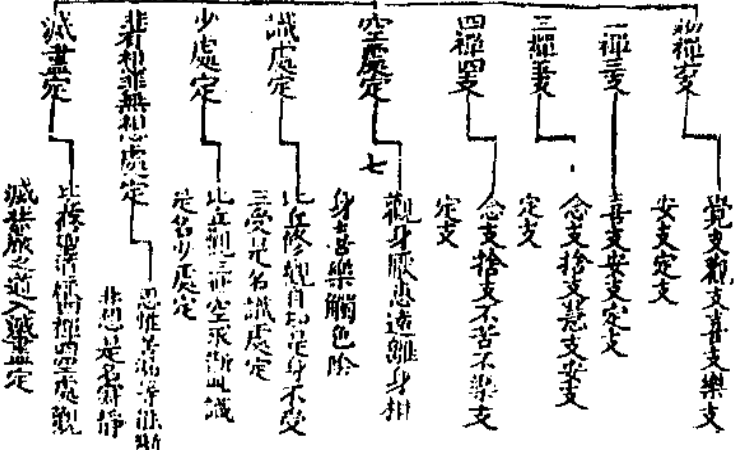 初禪六支
覺支觀支喜支樂支
安支定支
二禪三支
喜支安支定支
三禪五支
念支捨支慧支安支
定支
四禪四支
念支捨支不苦不樂支
定支
空處定
七
觀身厭患遠離身相
身喜樂觸色陰
識處定
比丘修觀自知是身不受
三受是名識處定
少處定
比丘觀三世空
是名少處定
非有想非無想處定
非想是名寂靜
滅盡定
比丘修
滅 之道入滅盡定